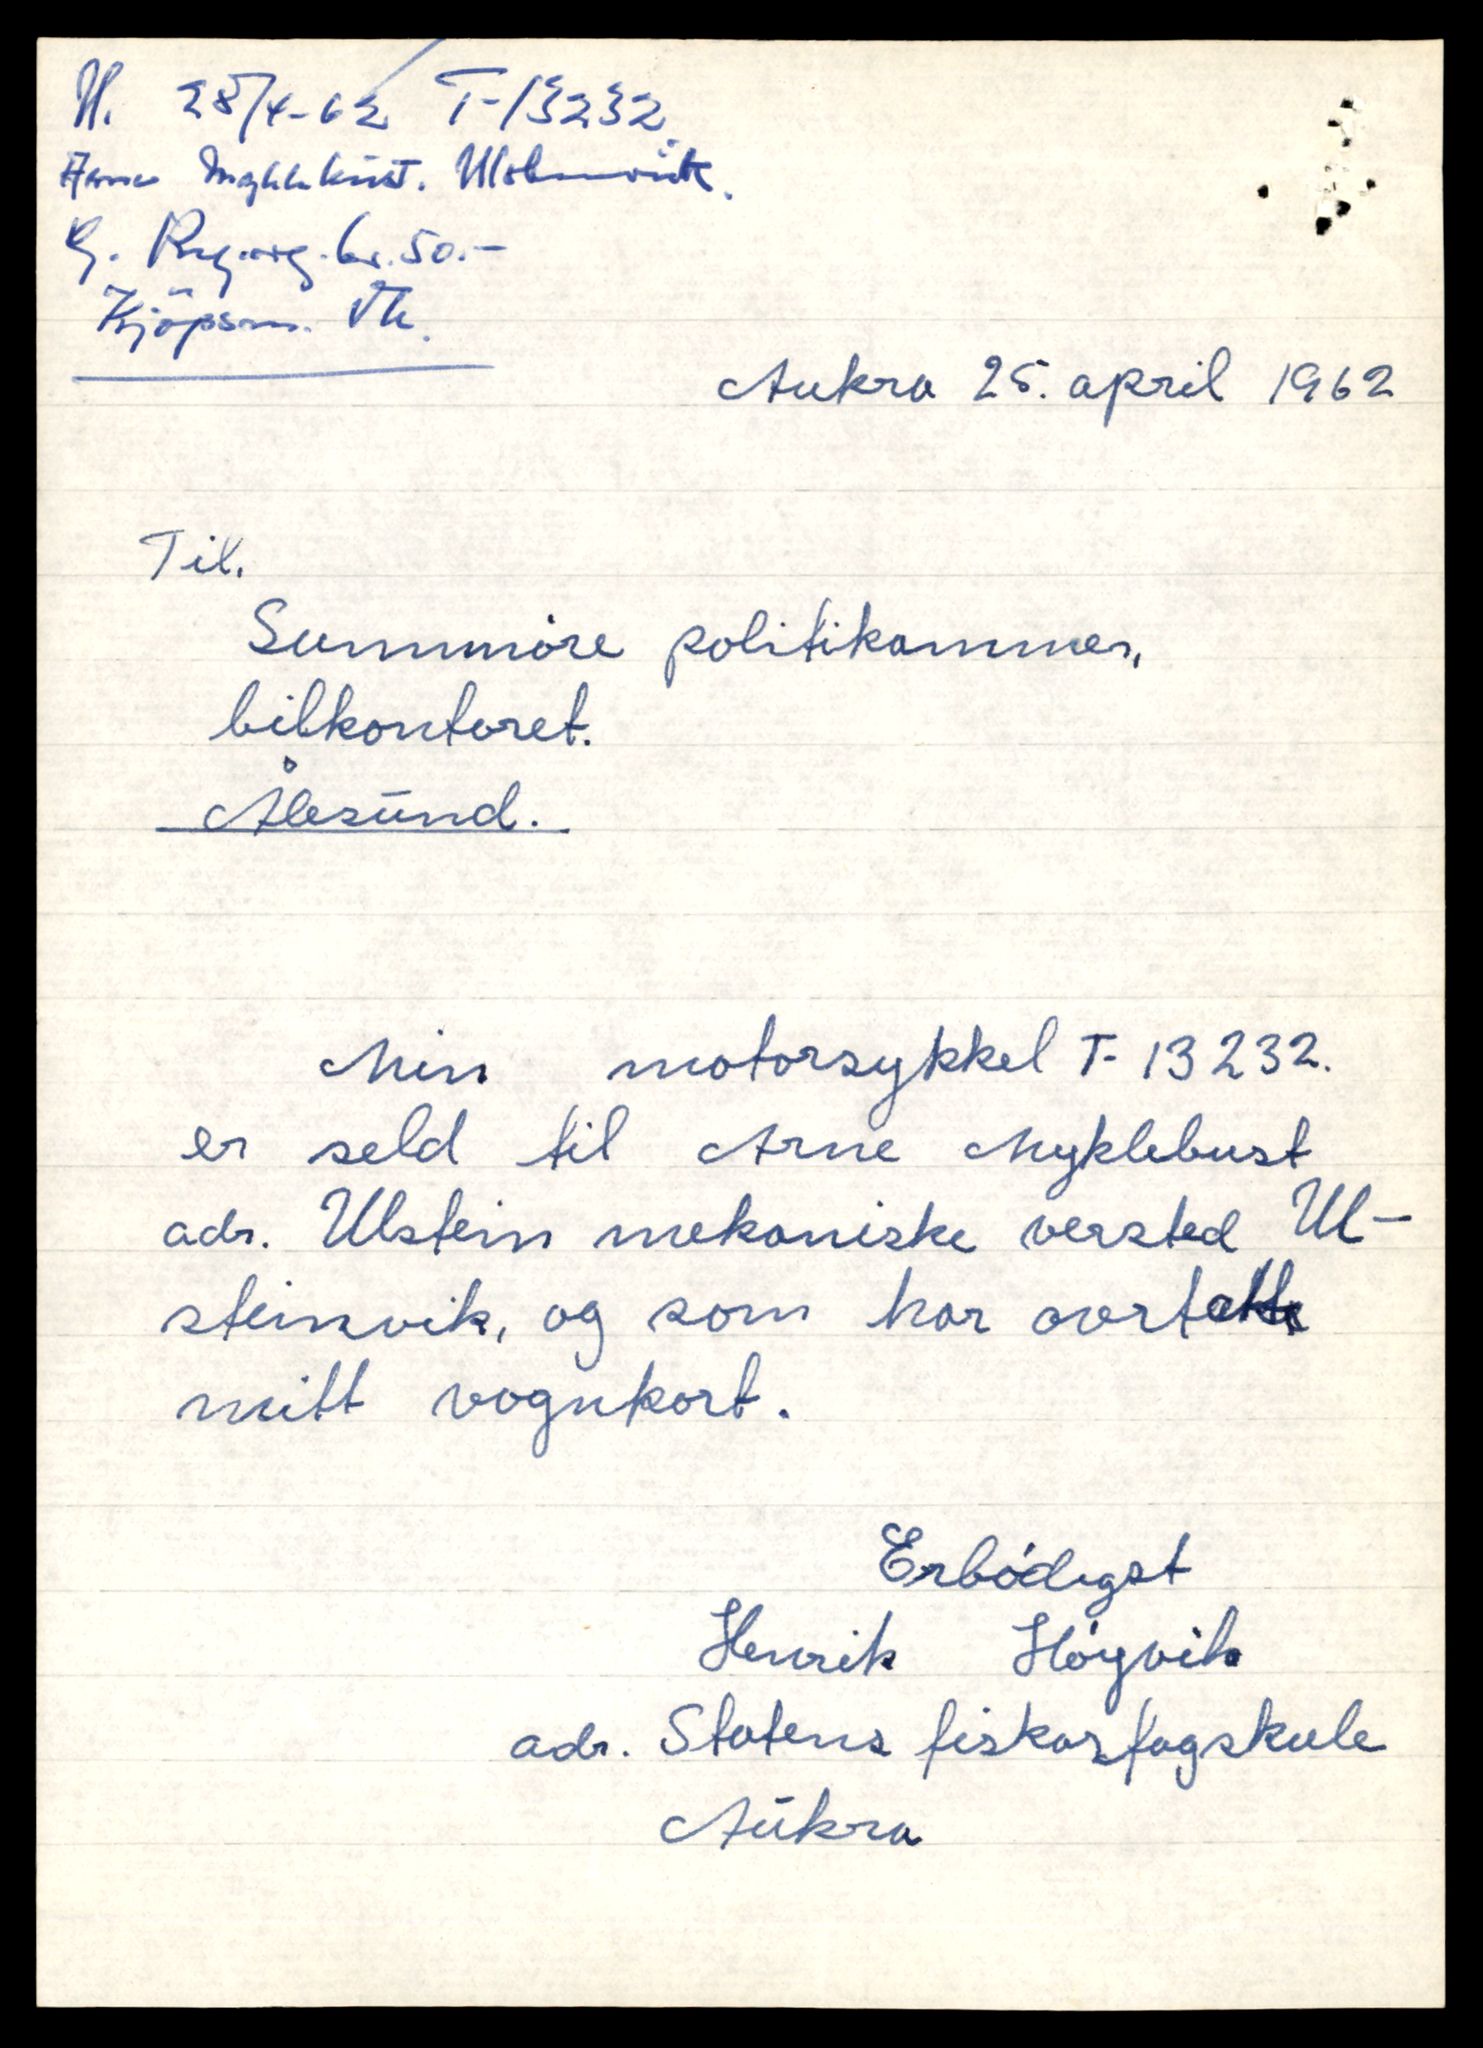 28/4-62 T-13232.
Arne Myklebust. Ulsteinvik.
Reg.avg. kr. 50.-
Kjöpsm.
Aukra 25. april 1962
Til.
Sunnmöre politikammer,
bilkontoret.
Ålesund.
Min motorsykkel T-13232.
er seld til Arne Myklebust
adr. Ulstein mekaniske versted Ul-
steinvik, og som har overtatt
mitt vognkort.
Erbödigst
Henrik Höyvik
adr. Statens fiskarfagskule
Aukra